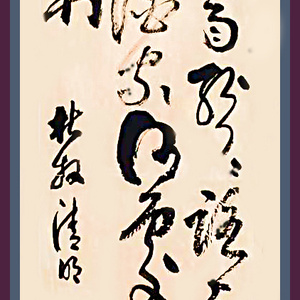 雨紛〻路
酒家何處
杜牧清明